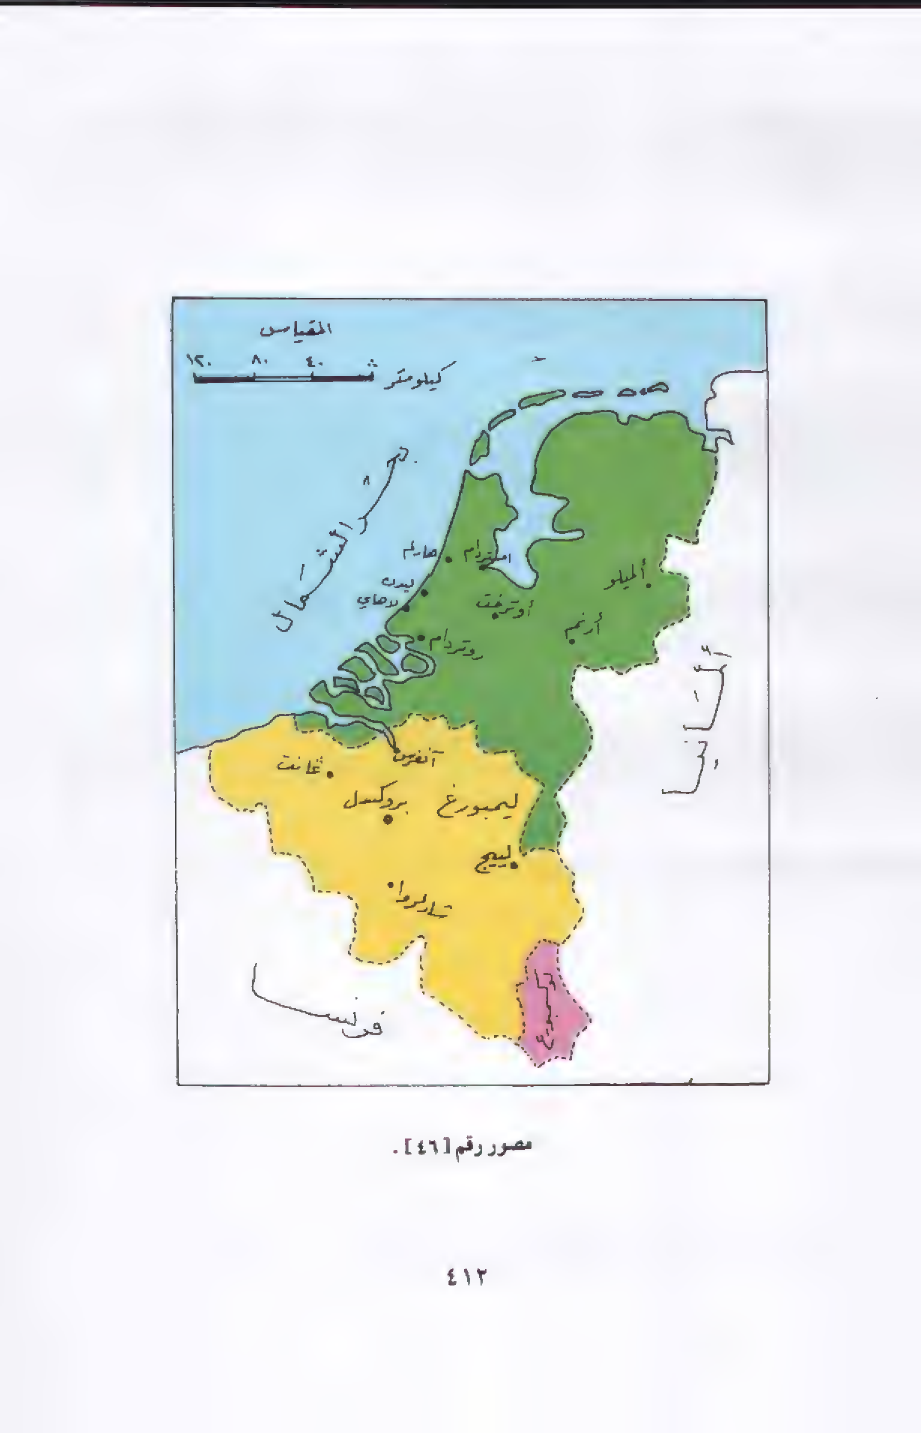 المقياس
١٢٠ ٨٠ ٤٠ كيلومتر
بحر الشمال
هارلم
امستردام
ليدن
لاهاي
أوترخت
ألميلو
أرنم
روتردام
ألمانيا
آنفرس
غانت
بروكسل
ليمبورغ
لييج
شارلروا
لوكسمبورغ
فرنسا
مصور رقم [٤٦] .
٤١٣